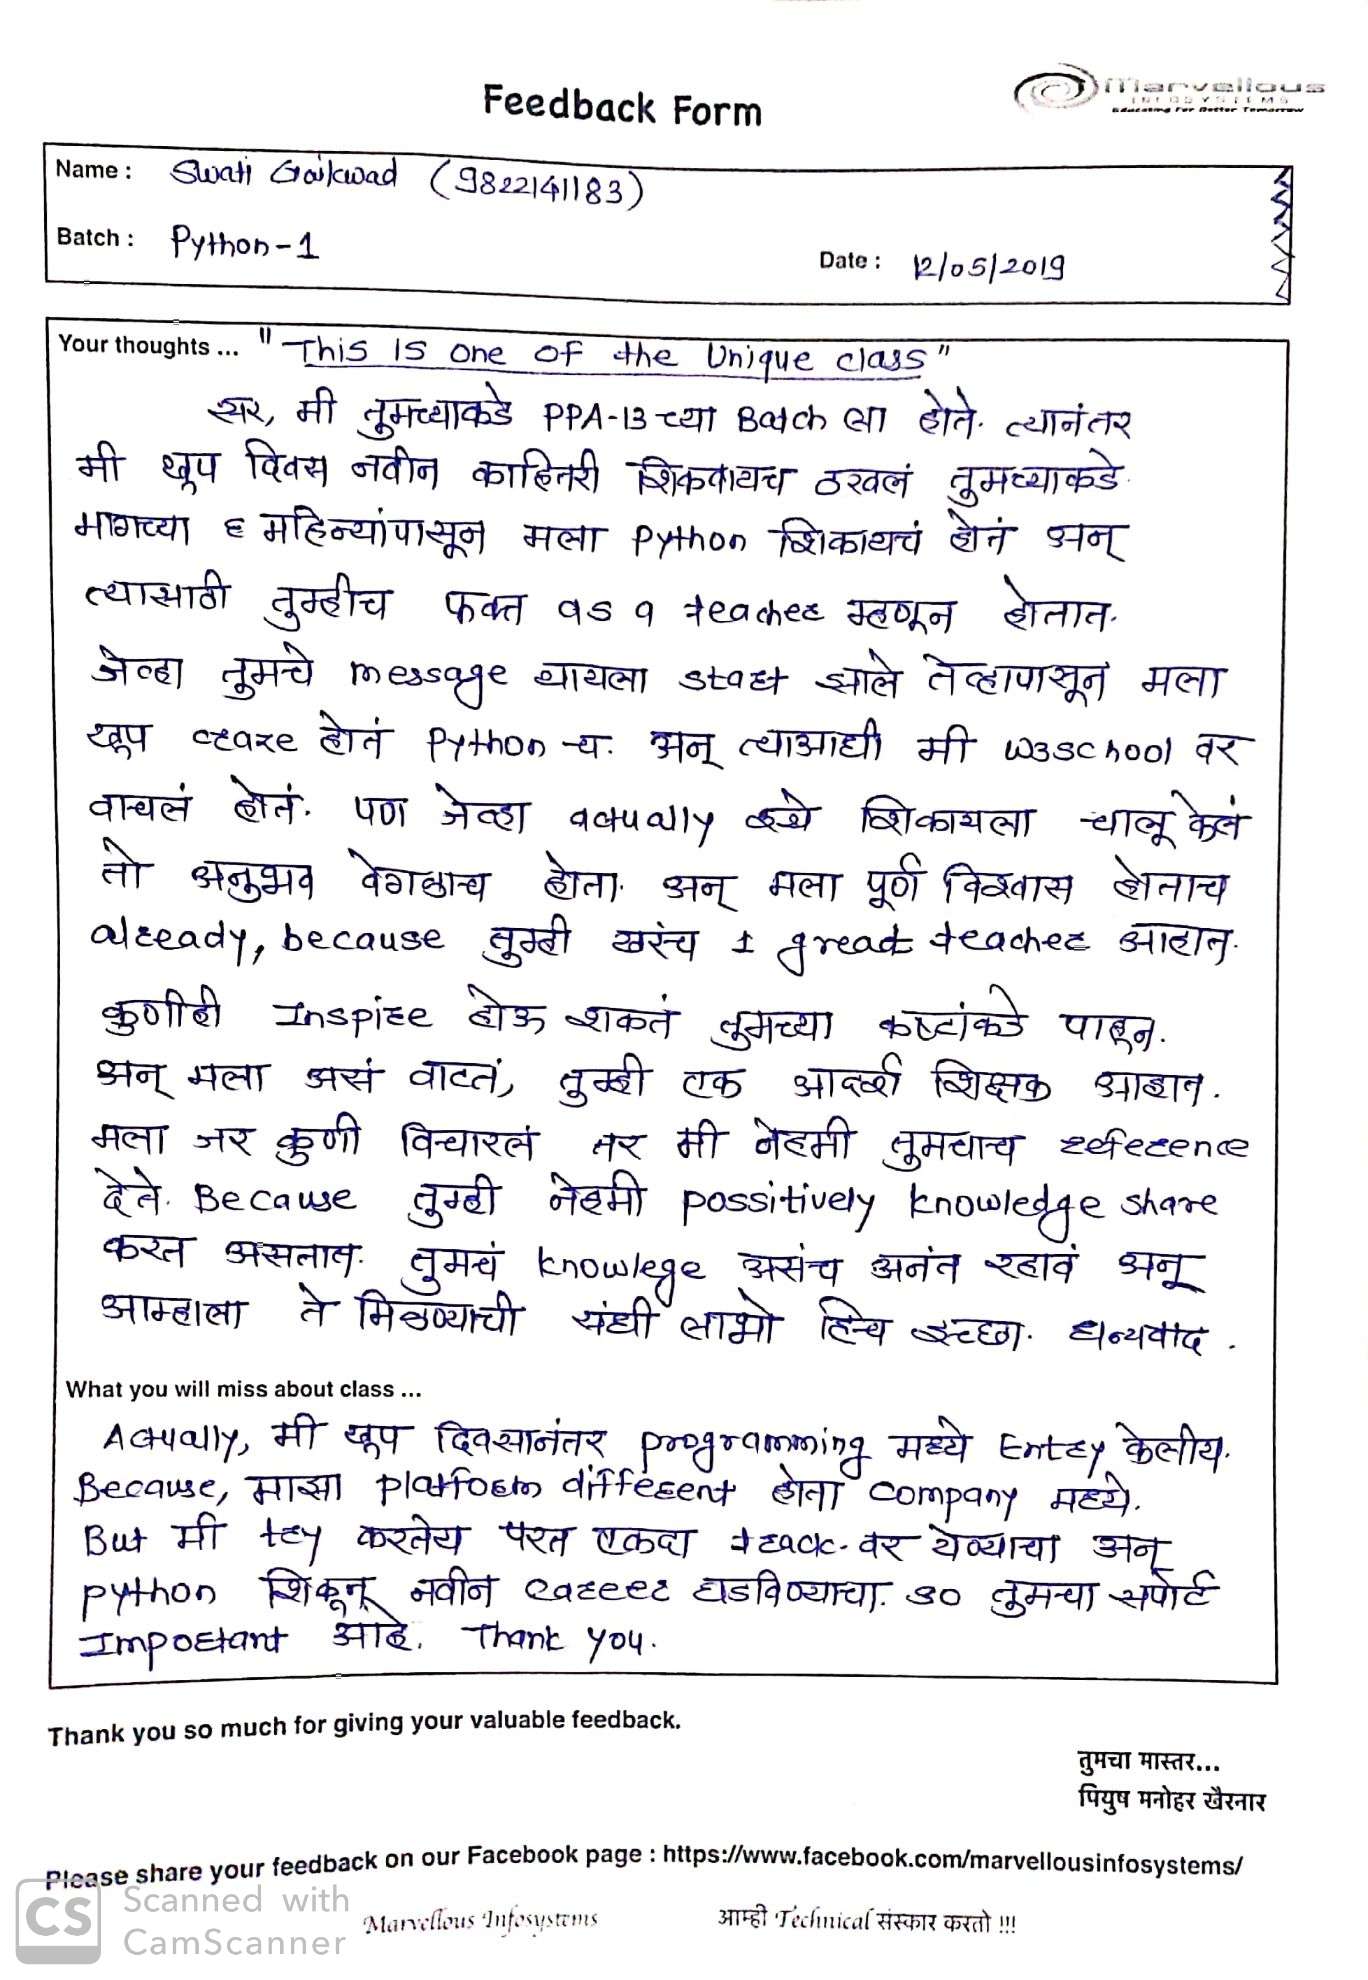 Feedback Form
Marvellous
INFOSYSTEMS
Educating For Better Tomorrow
Name : Swati Gaikwad (9822141183)
Batch : Python-1
Date : 12/05/2019
Your thoughts ... "This is one of the Unique class"
सर, मी तुमच्याकडे PPA-13 च्या Batch ला होते. त्यानंतर
मी खूप दिवस नवीन काहितरी शिकवायच ठरवलं तुमच्याकडे.
मागच्या ६ महिन्यांपासून मला Python शिकायचं होतं अन्
त्यासाठी तुम्हीच फक्त as a teacher म्हणून होतात.
जेव्हा तुमचे message यायला start झाले तेव्हापासून मला
खूप craze होतं Python च. अन् त्याआधी मी w3school वर
वाचलं होतं. पण जेव्हा actually इथे शिकायला चालू केलं
तो अनुभव वेगळाच होता. अन् मला पूर्ण विश्वास होताच
already, because तुम्ही खरंच 1 great teacher आहात.
कुणीही Inspire होऊ शकतं तुमच्या कष्टांकडे पाहून.
अन् मला असं वाटतं, तुम्ही एक आदर्श शिक्षक आहात.
मला जर कुणी विचारलं तर मी नेहमी तुमचाच reference
देते. Because तुम्ही नेहमी possitively knowledge share
करत असतात. तुमचं knowlege असंच अनंत रहावं अनू
आम्हाला ते मिळण्याची संधी लाभो हिच इच्छा. धन्यवाद.
What you will miss about class ...
Actually, मी खूप दिवसानंतर programming मध्ये Entry केलीय.
Because, माझा platform different होता company मध्ये.
But मी try करतेय परत एकदा track वर येण्याचा अन्
python शिकून नवीन career घडविण्याचा. so तुमचा सपोर्ट
Important आहे. Thank you.
Thank you so much for giving your valuable feedback.
तुमचा मास्तर...
पियुष मनोहर खैरनार
Please share your feedback on our Facebook page : https://www.facebook.com/marvellousinfosystems/
Marvellous Infosystems आम्ही Technical संस्कार करतो !!!
CS Scanned with
CamScanner